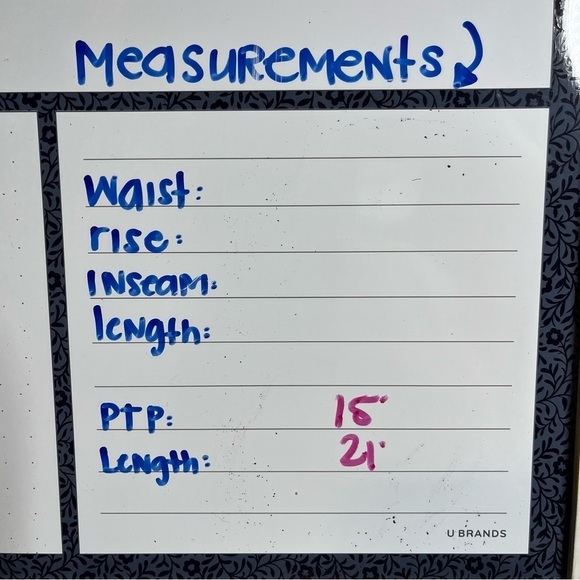 Measurements
Waist:
rise:
Inseam:
length:
PTP: 15"
Length: 21"
U BRANDS